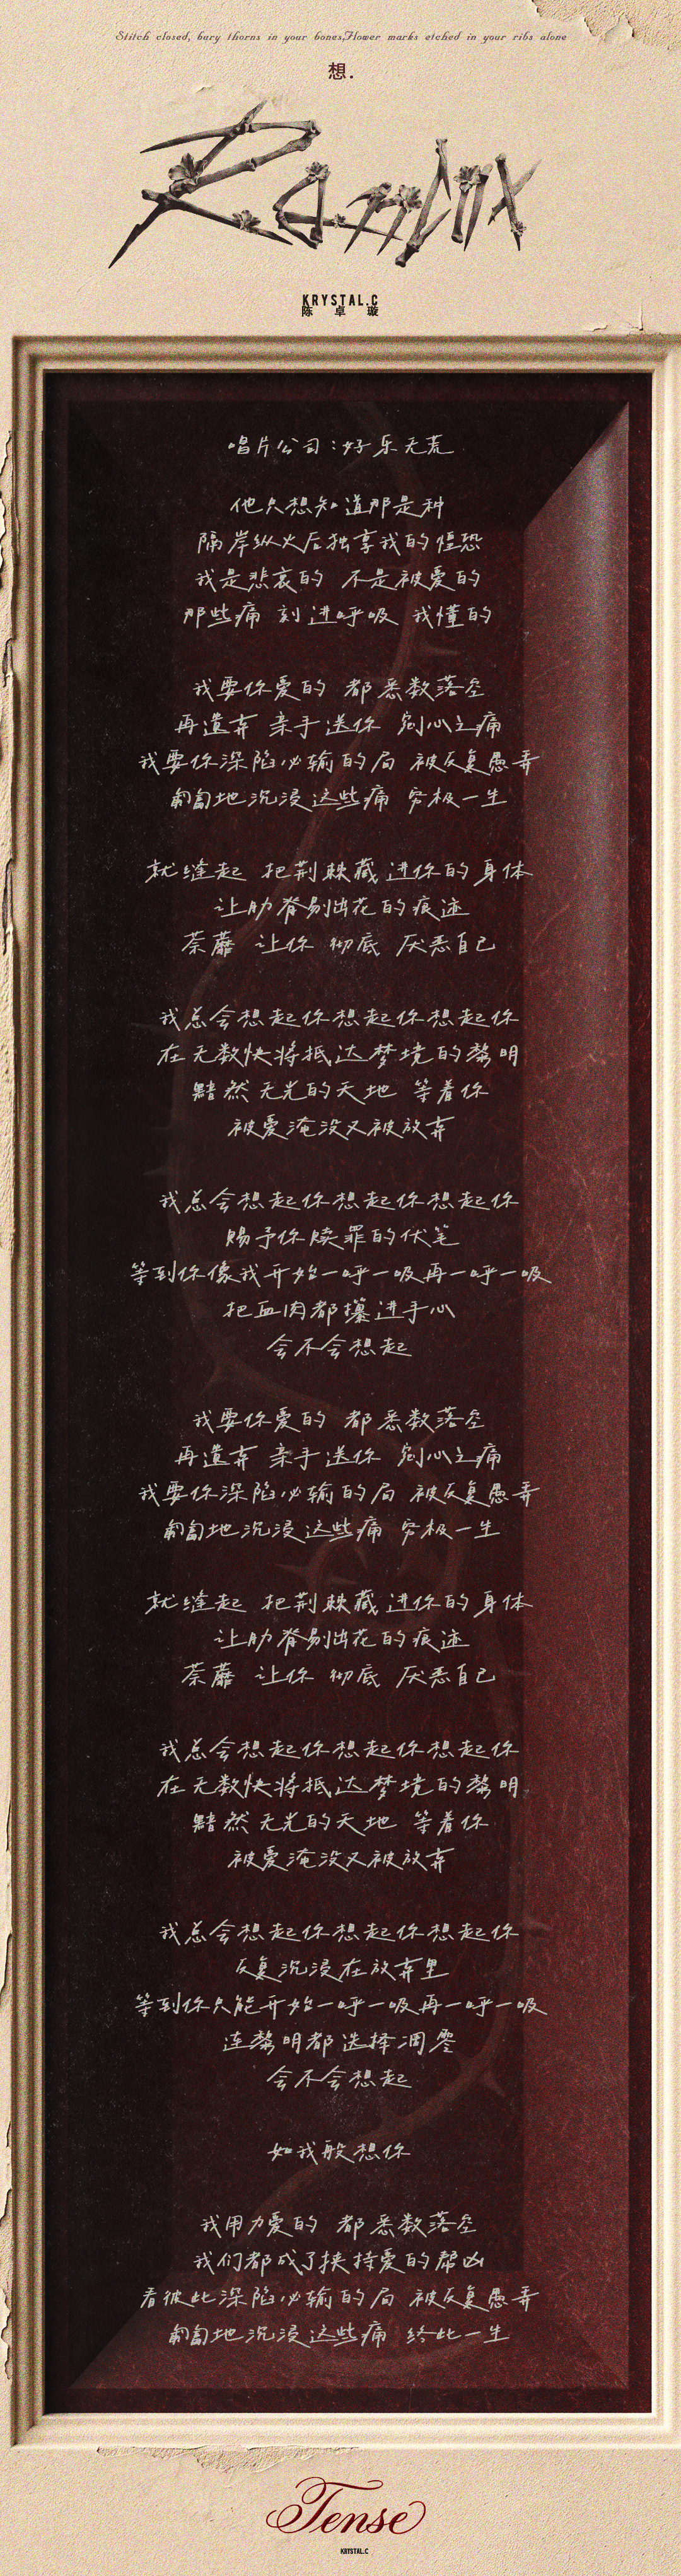 Stitch closed, bury thorns in your bones,Flower marks etched in your ribs alone
想.
KRYSTAL.C
陈卓璇
唱片公司：好乐无荒
他只想知道那是种
隔岸纵火后独享我的惶恐
我是悲哀的 不是被爱的
那些痛 刻进呼吸 我懂的
我要你爱的 都悉数落空
再遗弃 亲手送你 剜心之痛
我要你深陷必输的局 被反复愚弄
匍匐地沉浸这些痛 穷极一生
就缝起 把荆棘藏进你的身体
让肋脊剔出花的痕迹
荼蘼 让你 彻底 厌恶自己
我总会想起你想起你想起你
在无数快将抵达梦境的黎明
黯然无光的天地 等着你
被爱淹没又被放弃
我总会想起你想起你想起你
赐予你赎罪的伏笔
等到你像我开始一呼一吸再一呼一吸
把血肉都攥进手心
会不会想起
我要你爱的 都悉数落空
再遗弃 亲手送你 剜心之痛
我要你深陷必输的局 被反复愚弄
匍匐地沉浸这些痛 穷极一生
就缝起 把荆棘藏进你的身体
让肋脊剔出花的痕迹
荼蘼 让你 彻底 厌恶自己
我总会想起你想起你想起你
在无数快将抵达梦境的黎明
黯然无光的天地 等着你
被爱淹没又被放弃
我总会想起你想起你想起你
反复沉浸在放弃里
等到你只能开始一呼一吸再一呼一吸
连黎明都选择凋零
会不会想起
如我般想你
我用力爱的 都悉数落空
我们都成了挟持爱的帮凶
看彼此深陷必输的局 被反复愚弄
匍匐地沉浸这些痛 终此一生
Tense
KRYSTAL.C